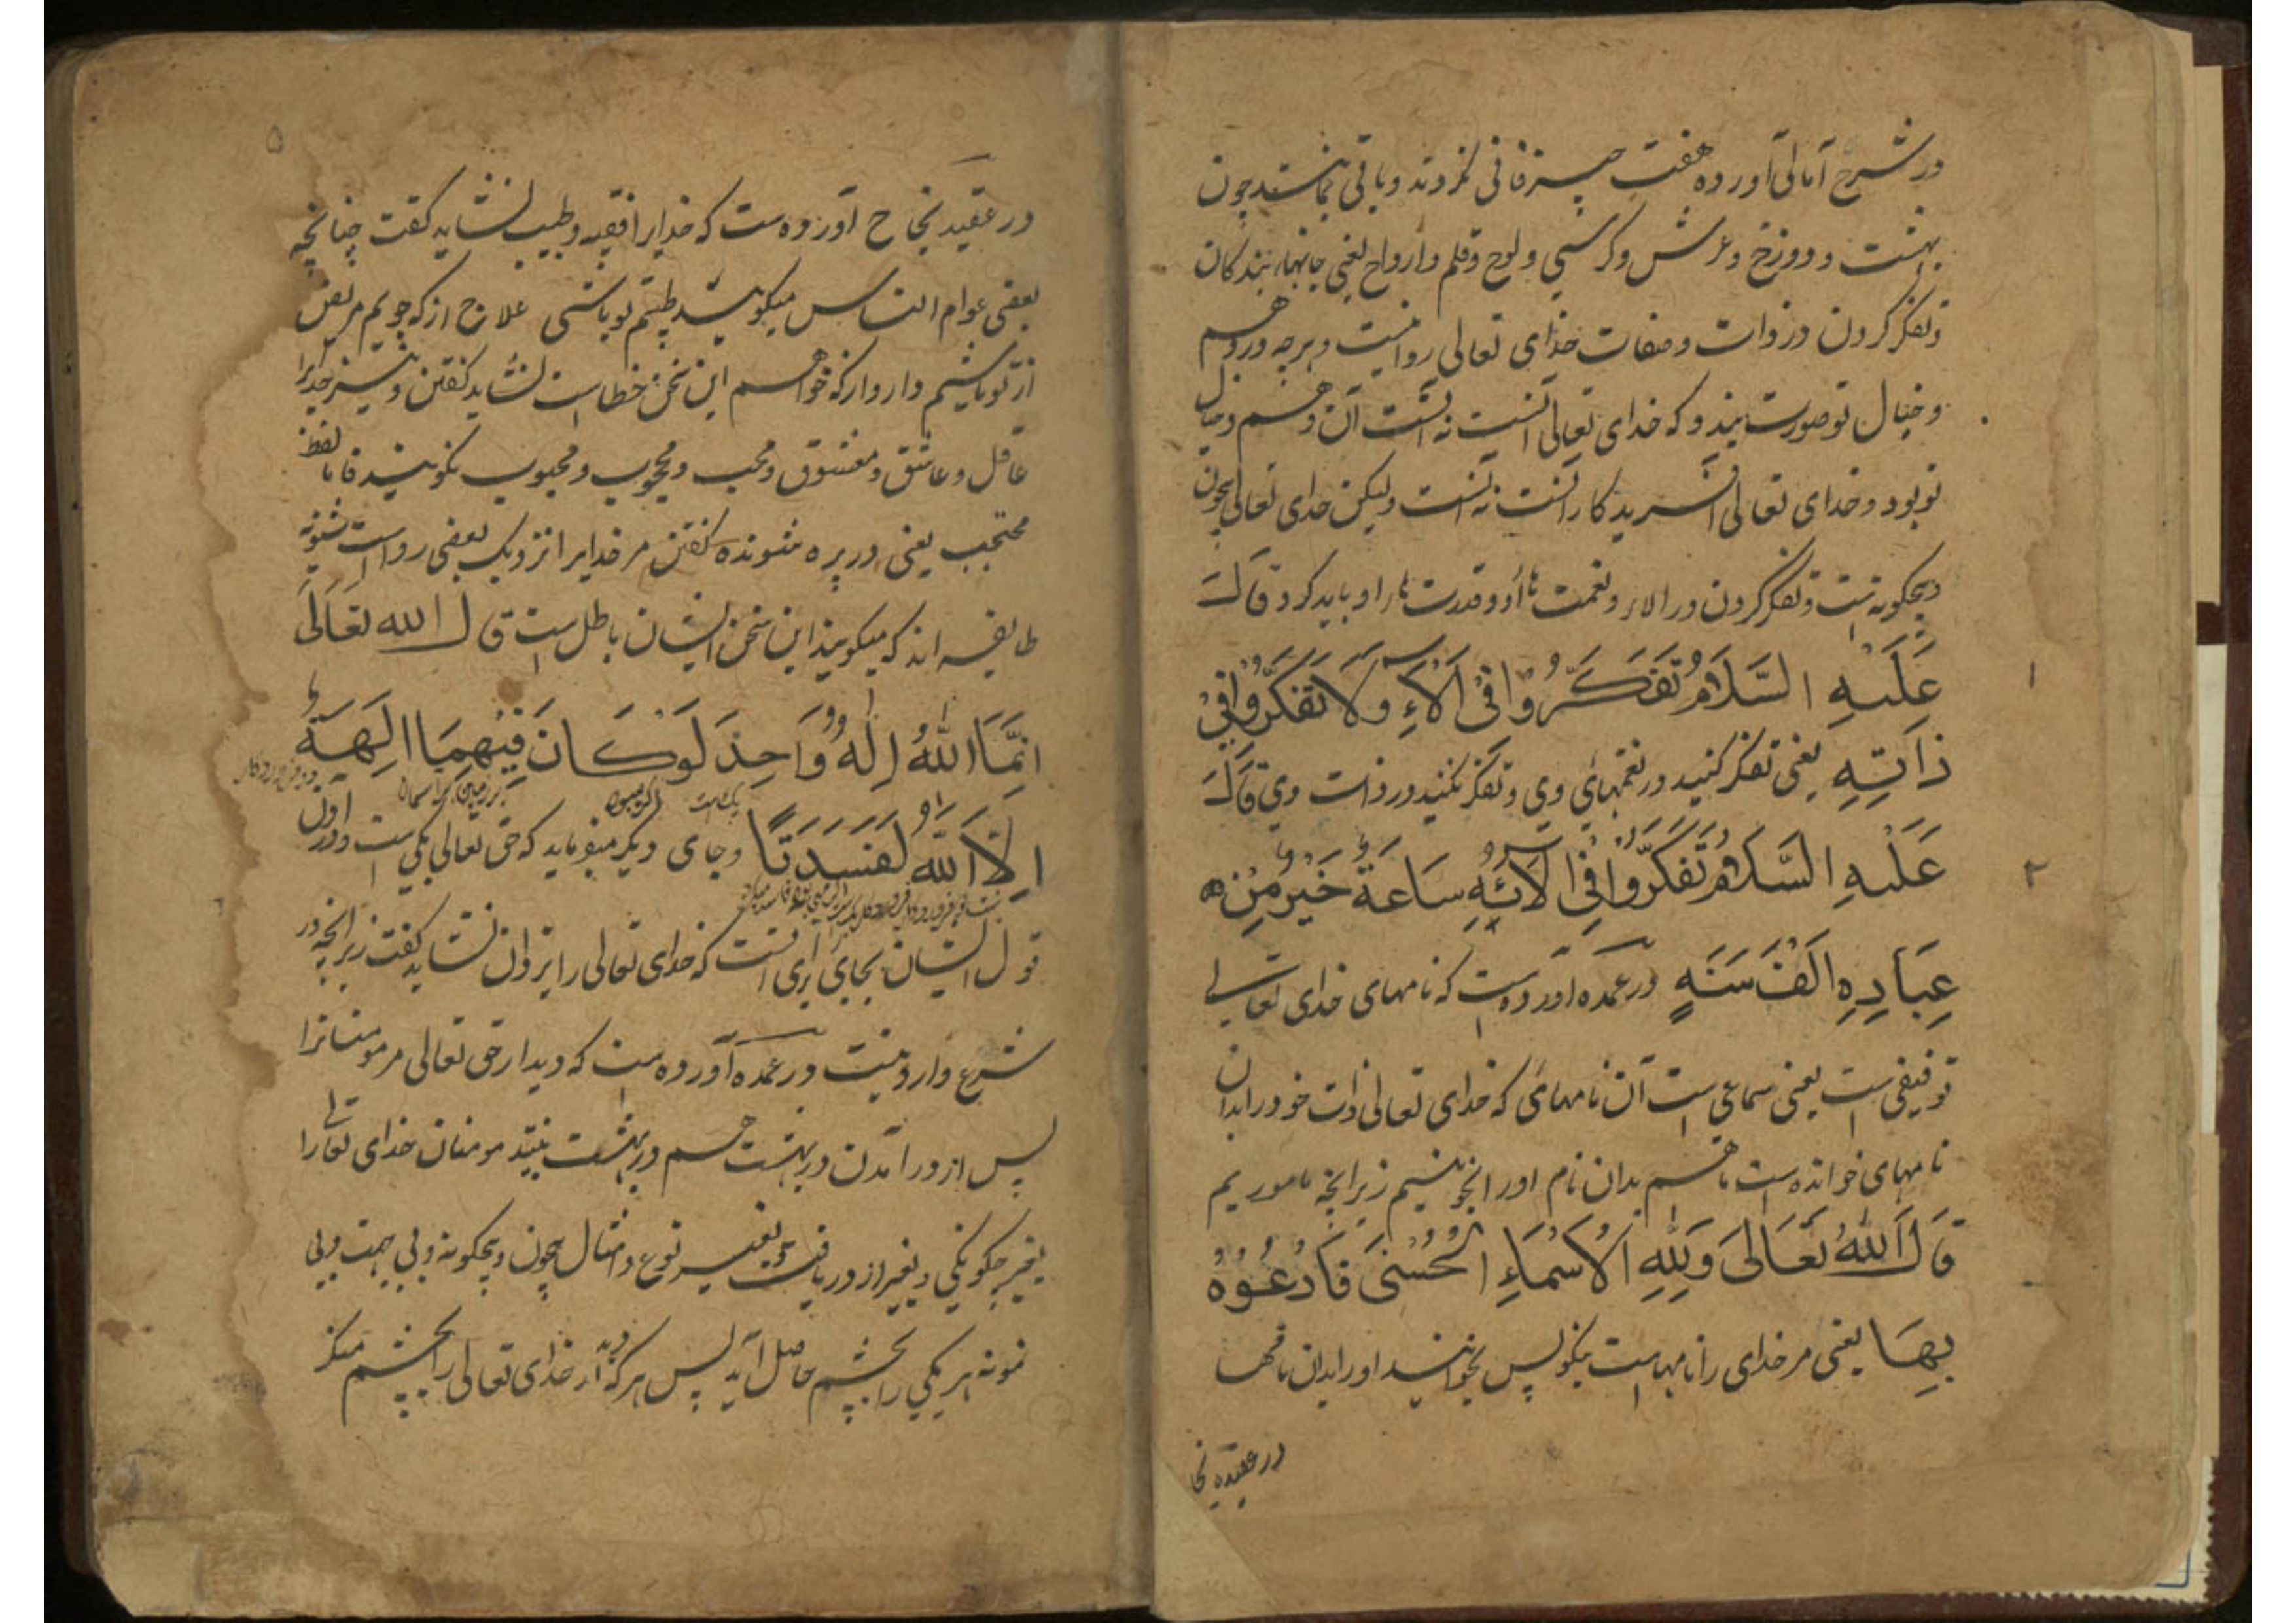 در شرح آمالی آورده هفت چیز فانی نکردند و باقی بمانند چون
بهشت و دوزخ و عرش و کرسی و لوح و قلم و ارواح یعنی جانهاء بندکان
و تفکر کردن در ذات و صفات خدای تعالی روا نیست و هرچه در وهم
و خیال تو صورت بندد که خدای تعالی آنست نه آنست آن وهم و خیال
تو بود و خدای تعالی آفریدکار آنست نه آنست ولیکن خدای تعالی بیچون
و بیچکونه است و تفکر کردن در آلاء و نعمت هاء او و قدرت هاء او باید کرد قال
عَلَیْهِ السَّلَامُ تَفَکَّرُوْا فِیْ آلَاءِ وَلَا تَفَکَّرُوْا فِیْ
ذَاتِهِ یعنی تفکر کنید در نعمتهای وی و تفکر نکنید در ذات وی قَالَ
عَلَیْهِ السَّلَامُ تَفَکَّرُوْا فِیْ آلَائِهِ سَاعَةً خَیْرٌ مِنْ
عِبَادِهِ الْفَ سَنَهٍ در عمده آورده است که نامهای خدای تعالی
توقیفی است یعنی سماعی است آن نامهای که خدای تعالی ذات خود را بدان
نامهای خوانده است ما هم بدان نام او را بخوانیم زیرانچه ماموریم
قَالَ اللهُ تَعَالَی وَلِلّٰهِ الْاَسْمَاءِ الْحُسْنَی فَادْعُوْهُ
بِهَا یعنی مر خدای را نامهاست نیکو پس بخوانید او را بدان نامها
در عقیده نجا
۵
در عقیده نجاح آورده ست که خدایرا فقیه و طبیب نشاید کفت چنانچه
بعضی عوام الناس میکویند طبیبم تو باشی علاج از که جویم مریض
از تو باشیم دارو از که خواهم این سخن خطا است نشاید کفتن و نیز خدایرا
عاقل و عاشق و معشوق و محب و محجوب و محبوب نکویند فاما لفظ
محتجب یعنی در پره شونده کفتن مر خدایرا نزدیک بعضی رواست ثنویه
طایفه اند که میکویند این سخن ایشان باطل ست قال الله تَعَالَی
اِنَّمَا اللهُ اِلٰهٌ وَّاحِدٌ لَوْ کَانَ فِیْهِمَا اٰلِهَةٌ
یک است اکر میبود
اِلَّا اللّٰهُ لَفَسَدَتَا و جای دیکر میفرماید که حق تعالی یکی است و در اول
قول ایشان بجای برای آنست که خدای تعالی را یزدان نشاید کفت زیرانچه در
شرع وارد نیست در عمده آورده ست که دیدار حق تعالی مر مومنانرا
پس از در آمدن در بهشت هم در بهشت بینند مومنان خدای تعالی را
بغیر چکونکی و بغیر از دریافت و بغیر نوع و مثال بیچون و بیچکونه و بی جهت و بی
نمونه هر یکی را بچشم حاصل آید پس هرکه دیدار خدای تعالی را بچشم منکر